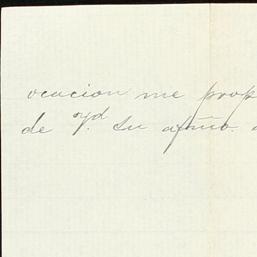 ocacion me prop
de Vd. Su afmo.